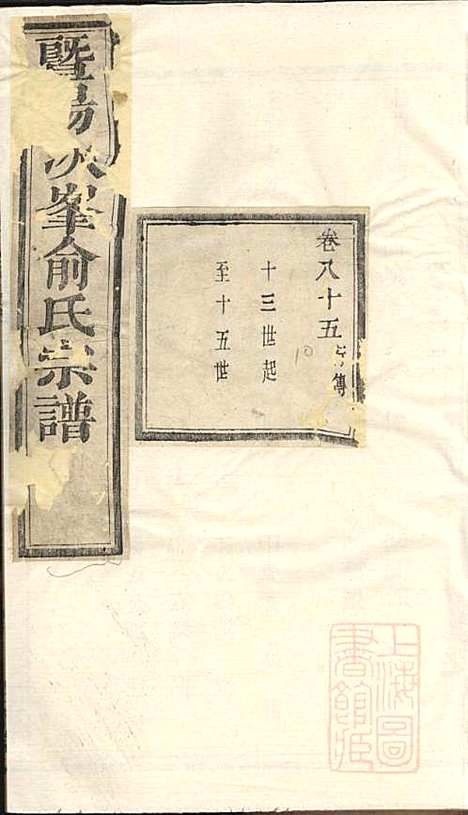 暨陽次峯俞氏宗譜
卷八十五 行傳
十三世起
至十五世
10
上海圖書館藏